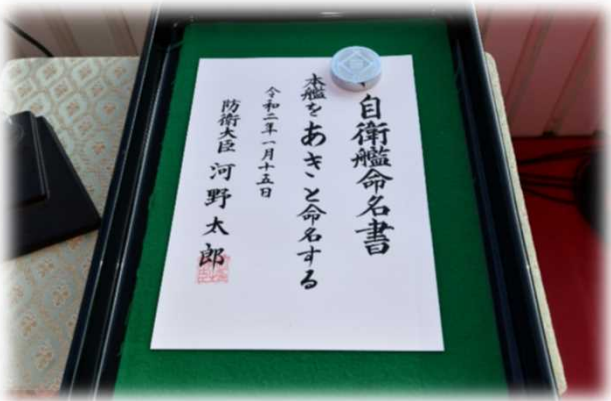 自衛艦命名書
本艦をあきと命名する
令和二年一月十五日
防衛大臣 河野太郎